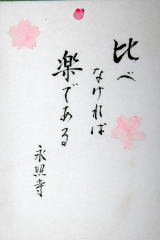 比べ
なければ
楽である
永照寺